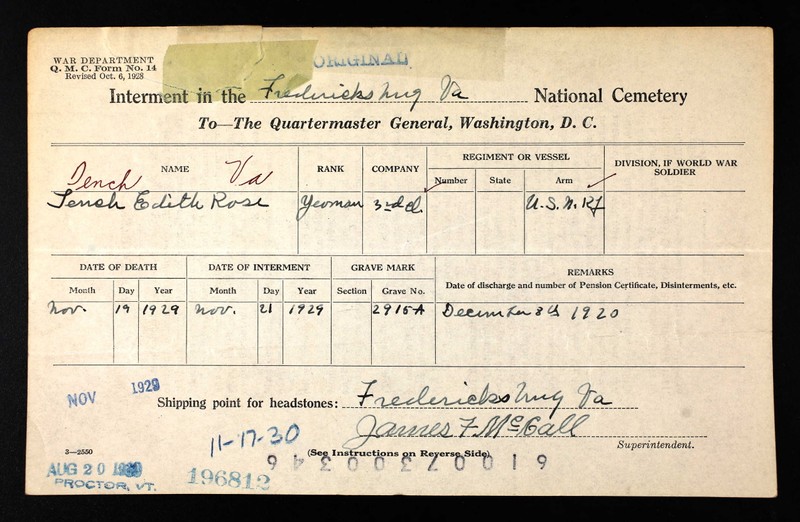 WAR DEPARTMENT
Q. M. C. Form No. 14
Revised Oct. 6, 1928
ORIGINAL
Interment in the Fredericksburg Va National Cemetery
To—The Quartermaster General, Washington, D. C.
NAME RANK COMPANY REGIMENT OR VESSEL DIVISION, IF WORLD WAR SOLDIER
Number State Arm
Tench Va
Tench Edith Rose Yeoman 3rd cl. U.S.N.RF
DATE OF DEATH DATE OF INTERMENT GRAVE MARK REMARKS
Month Day Year Month Day Year Section Grave No. Date of discharge and number of Pension Certificate, Disinterments, etc.
Nov. 19 1929 Nov. 21 1929 2915A December 8th 1920
NOV 1929
Shipping point for headstones: Fredericksburg Va
James F McCall
Superintendent.
11-17-30
3—2550
(See Instructions on Reverse Side)
61007300346
AUG 20
PROCTOR, VT.
196812